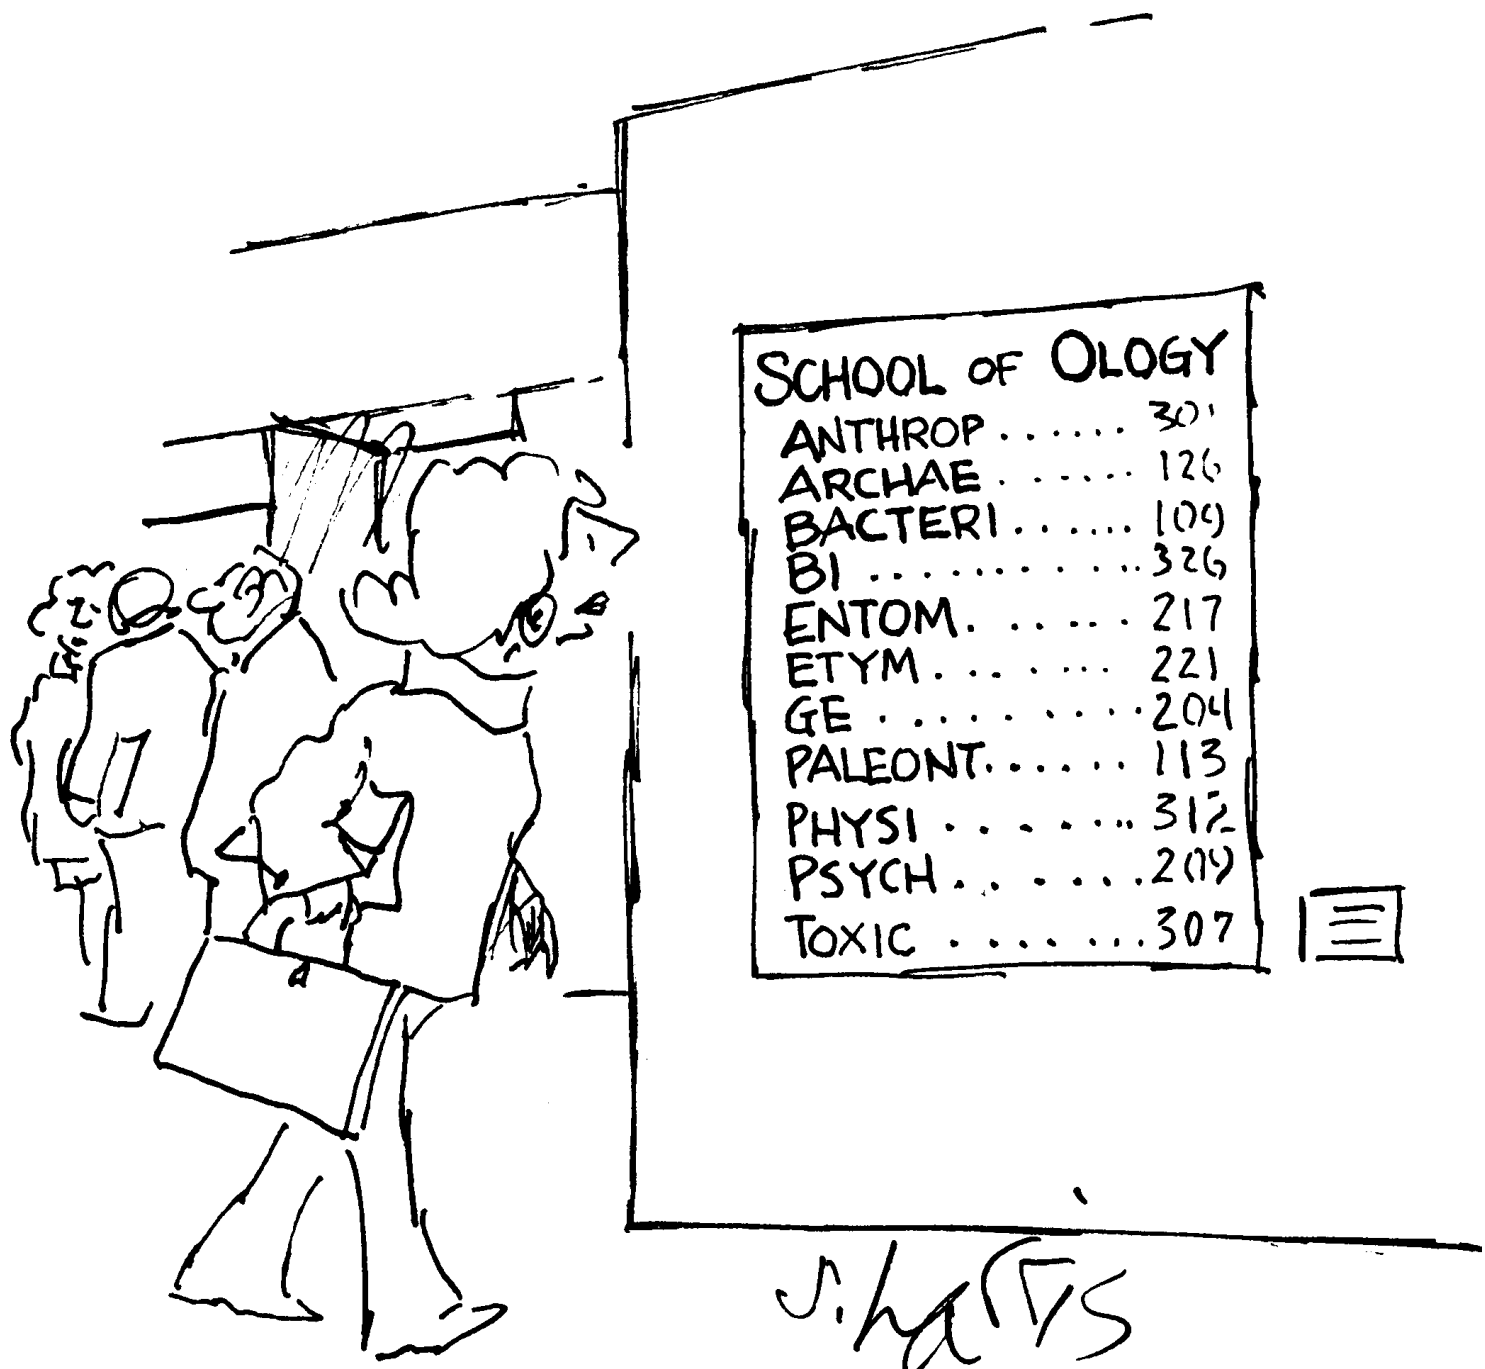 SCHOOL OF OLOGY
ANTHROP ...... 301
ARCHAE ...... 126
BACTERI ...... 109
BI ........... 326
ENTOM ...... 217
ETYM ...... 221
GE ......... 204
PALEONT ...... 113
PHYSI ....... 312
PSYCH ...... 209
TOXIC ....... 307
S. harris